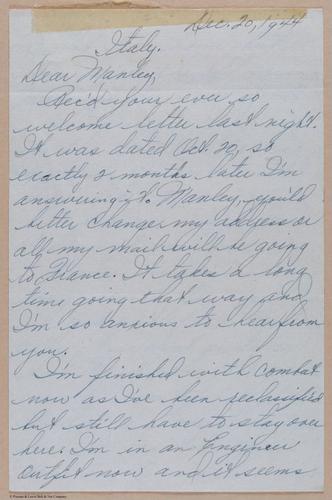 Dec. 20, 1944
Italy.
Dear Manley,
Rec'd your ever so
welcome letter last night.
It was dated Oct. 20, so
exactly 2 months later I'm
answering it. Manley, you'd
better change my address or
all my mail will be going
to France. It takes a long
time going that way and
I'm so anxious to hear from
you.
I'm finished with combat
now as I've been reclassified
but still have to stay over
here. I'm in an Engineer
outfit now and it seems